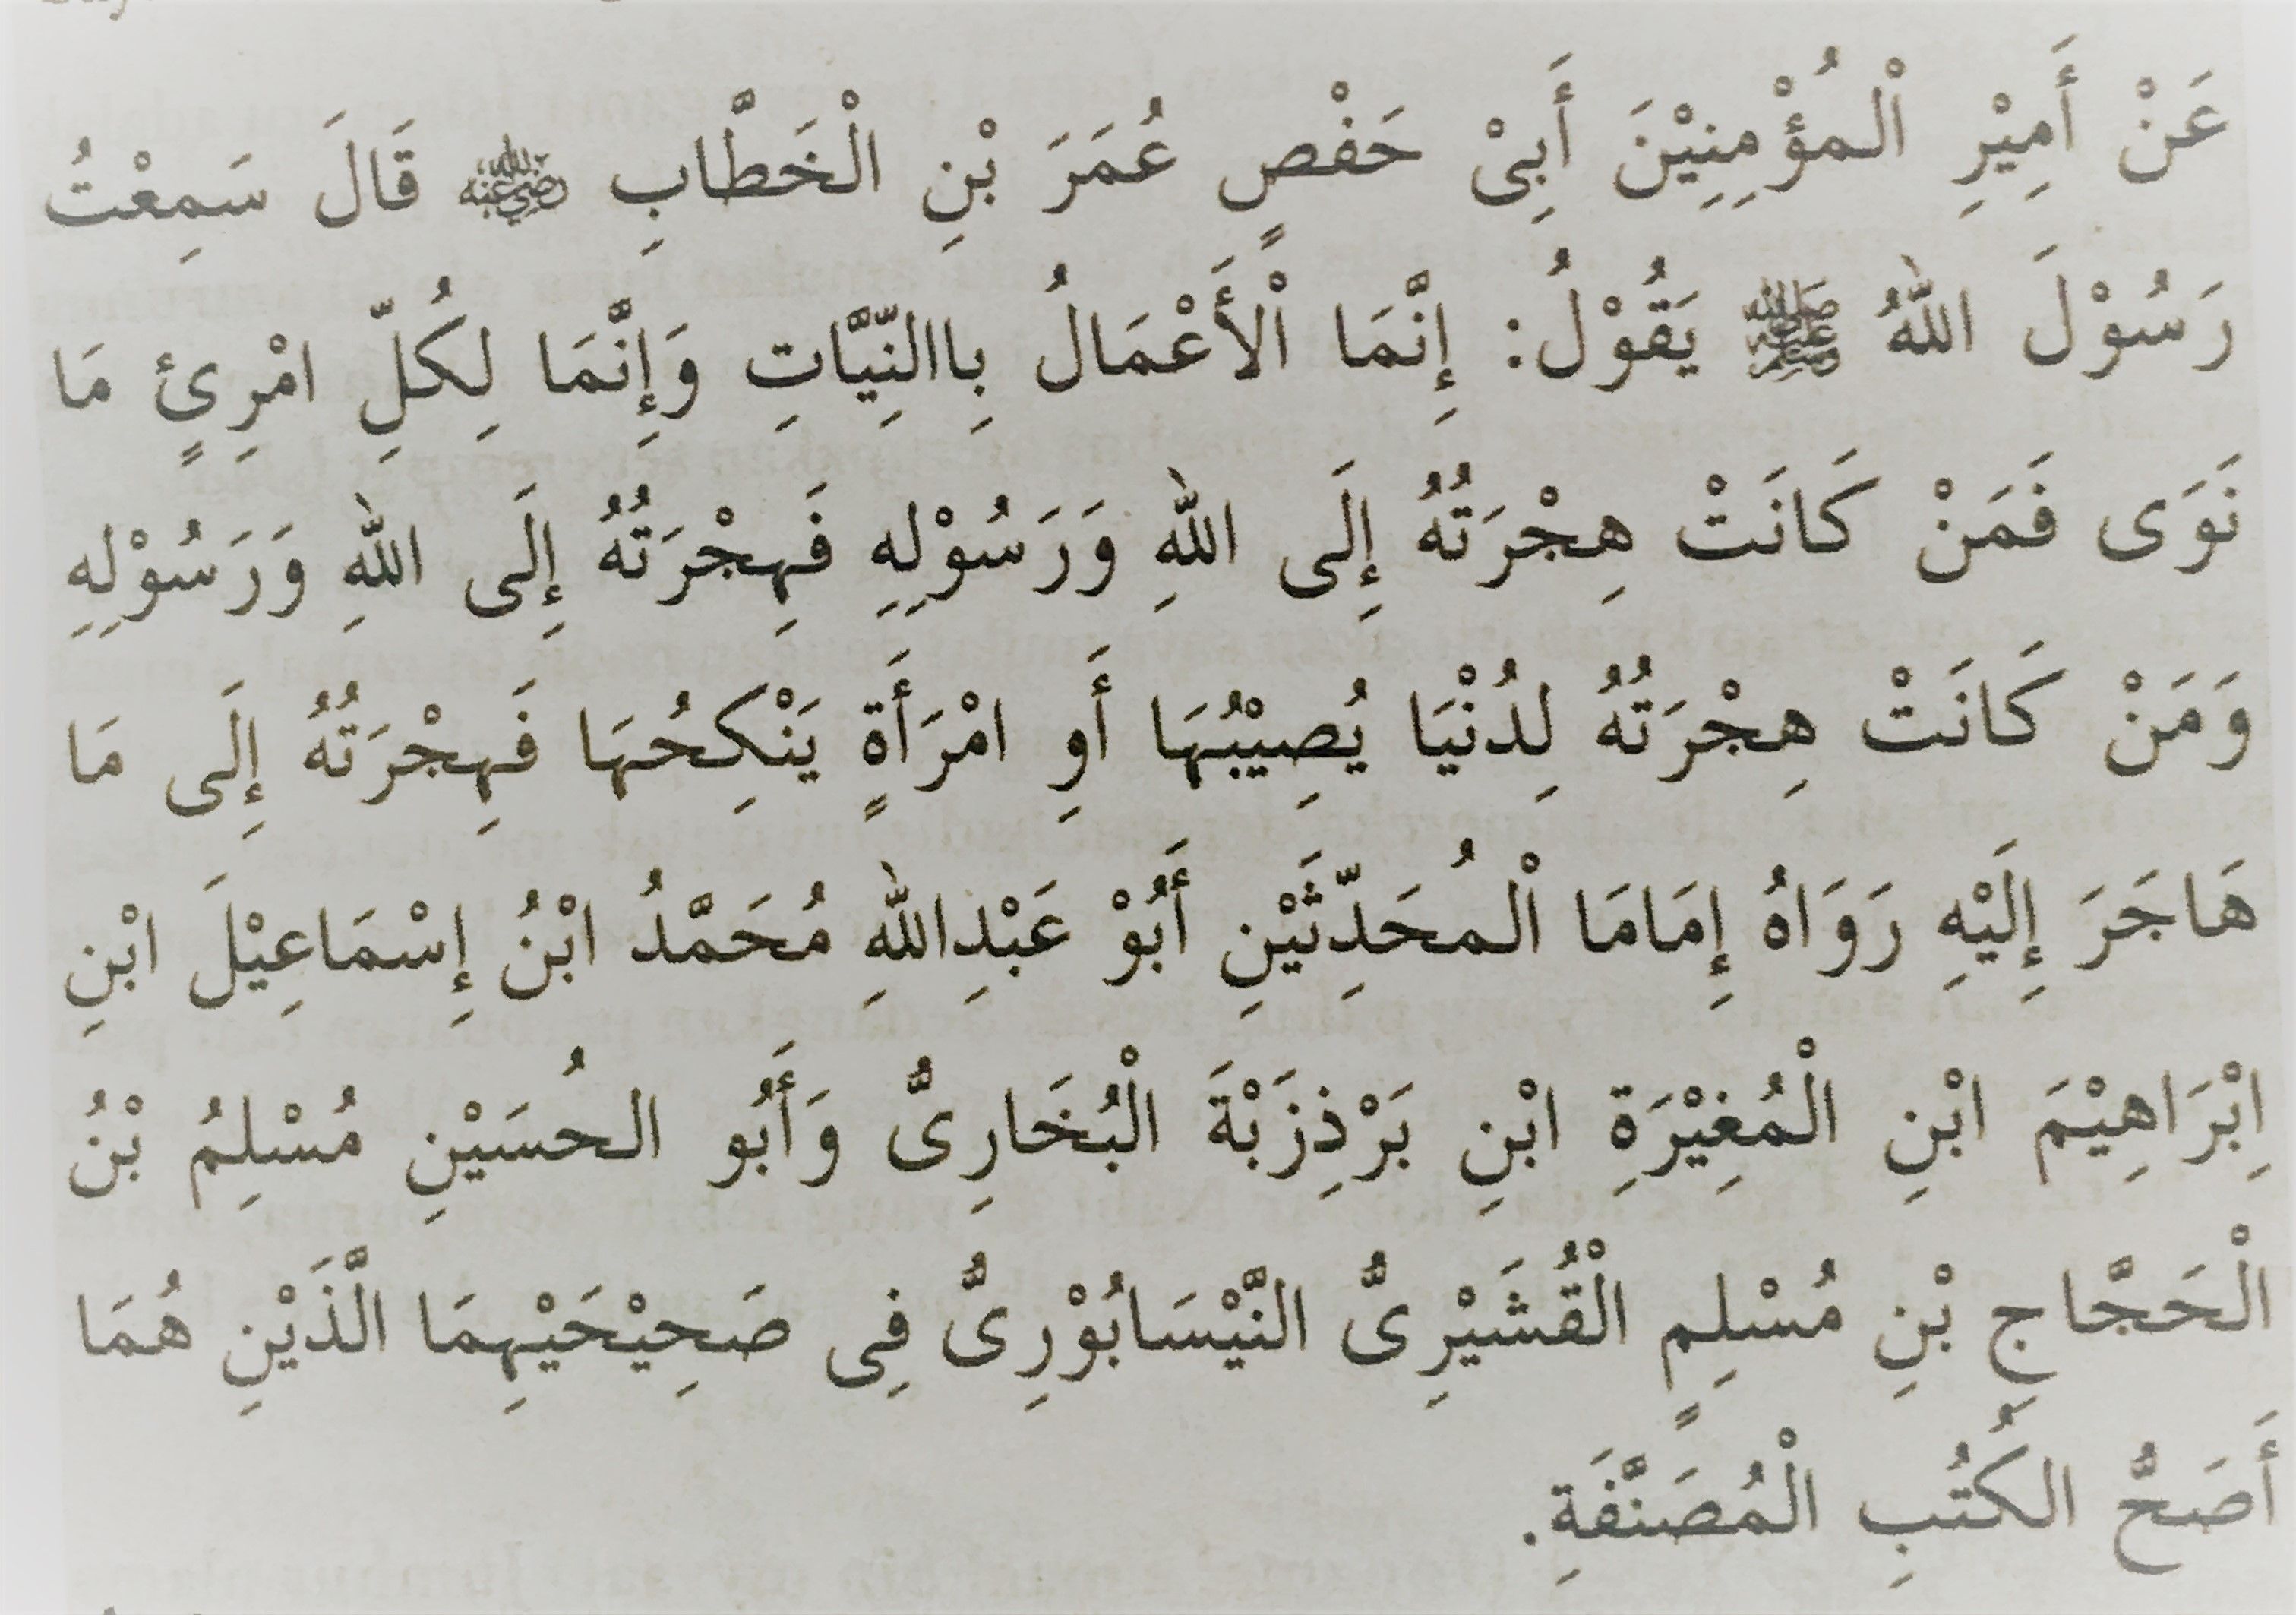 عَنْ أَمِيْرِ اْلمُؤْمِنِيْنَ أَبِىْ حَفْصٍ عُمَرَ بْنِ الْخَطَّابِ رضي الله عنه قَالَ سَمِعْتُ
رَسُوْلَ اللهُ ﷺ يَقُوْلُ: إِنَّمَا اْلأَعْمَالُ بِاالنِّيَّاتِ وَإِنَّمَا لِكُلِّ امْرِئٍ مَا
نَوَى فَمَنْ كَانَتْ هِجْرَتُهُ إِلَى اللهِ وَرَسُوْلِهِ فَهِجْرَتُهُ إِلَى اللهِ وَرَسُوْلِهِ
وَمَنْ كَانَتْ هِجْرَتُهُ لِدُنْيَا يُصِيْبُهَا أَوِ امْرَأَةٍ يَنْكِحُهَا فَهِجْرَتُهُ إِلَى مَا
هَاجَرَ إِلَيْهِ رَوَاهُ إِمَامَا اْلمُحَدِّثَيْنِ أَبُوْ عَبْدِاللهِ مُحَمَّدُ ابْنُ إِسْمَاعِيْلَ ابْنِ
اِبْرَاهِيْمَ ابْنِ الْمُغِيْرَةِ ابْنِ بَرْذِزَبْةَ الْبُخَارِىُّ وَأَبُو الحُسَيْنِ مُسْلِمُ بْنُ
الْحَجَّاجِ بْنِ مُسْلِمٍ الْقُشَيْرِىُّ النَّيْسَابُوْرِىُّ فِى صَحِيْحَيْهِمَا الَّذَيْنِ هُمَا
أَصَحُّ الكُتُبِ الْمُصَنَّفَةِ.